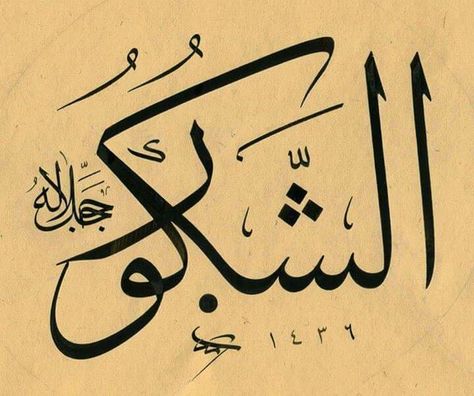 الشَّكُورُ
جل جلاله
١٤٣٦